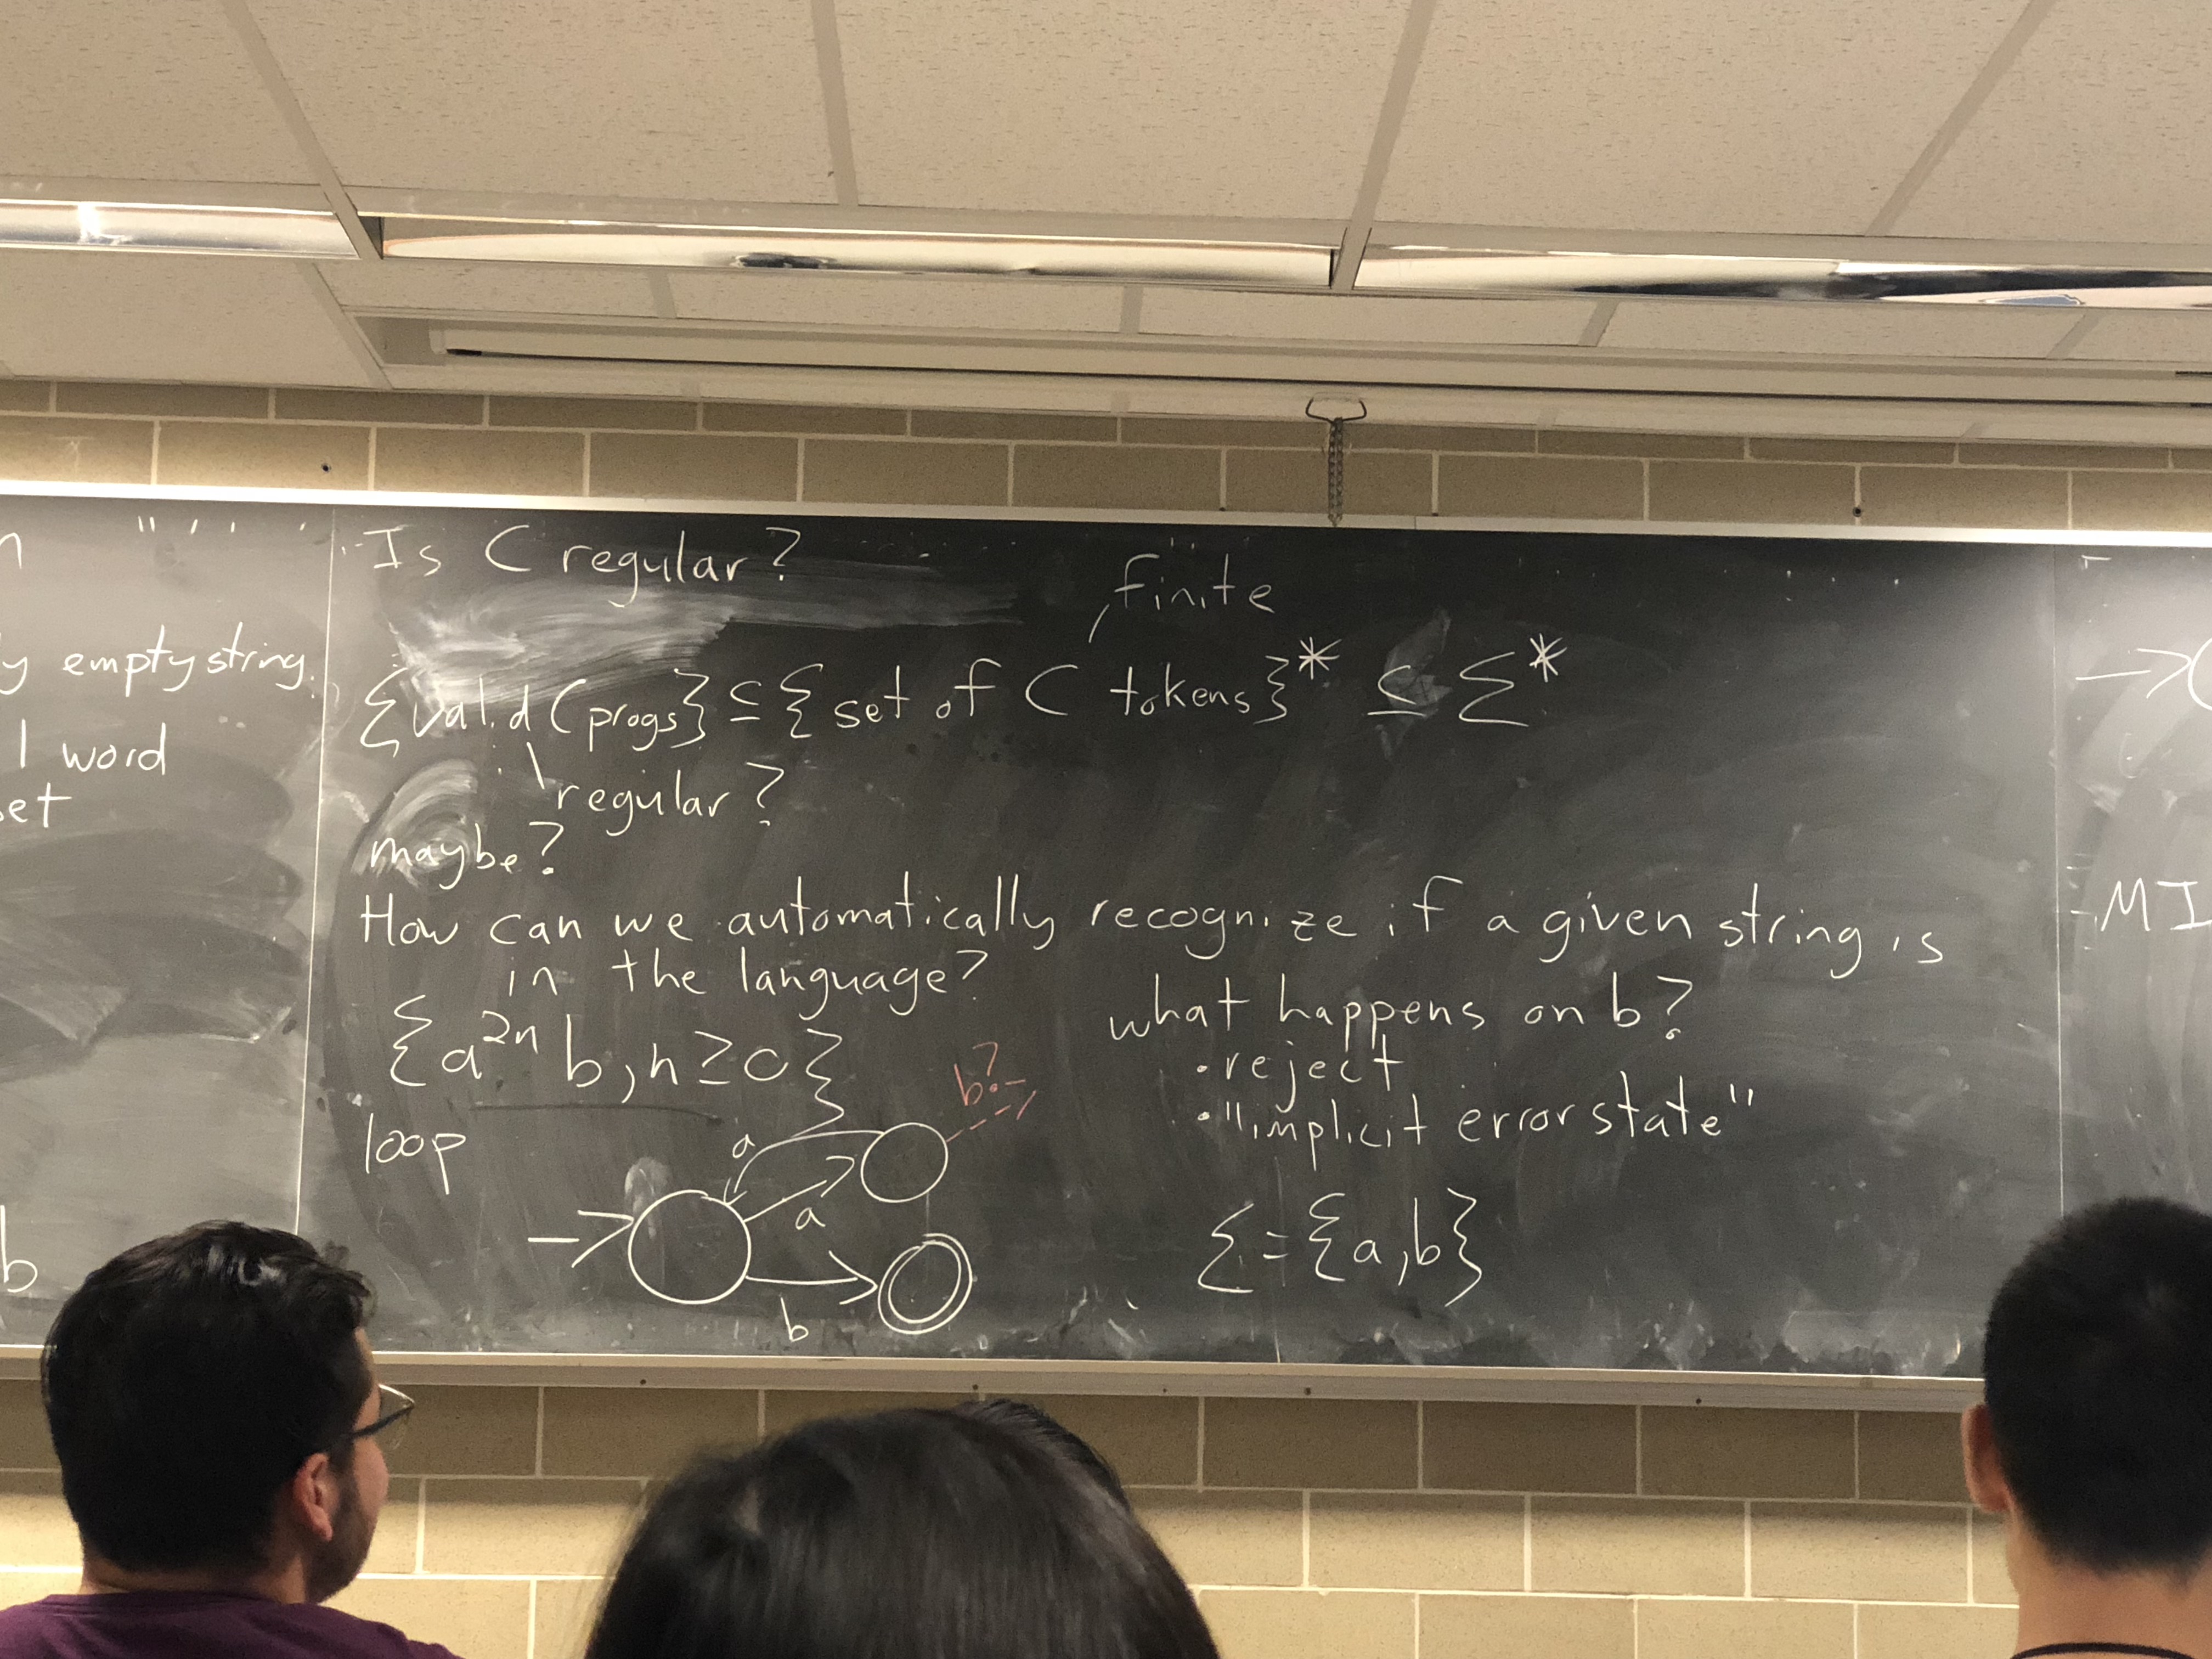 empty string
1 word
b
Is C regular?
finite
{valid C progs} ⊆ {set of C tokens}* ⊆ Σ*
regular?
maybe?
How can we automatically recognize if a given string is
in the language?
{a²ⁿb, n≥0}
loop
a
a
b
b?
what happens on b?
• reject
• "implicit error state"
Σ = {a, b}
MI